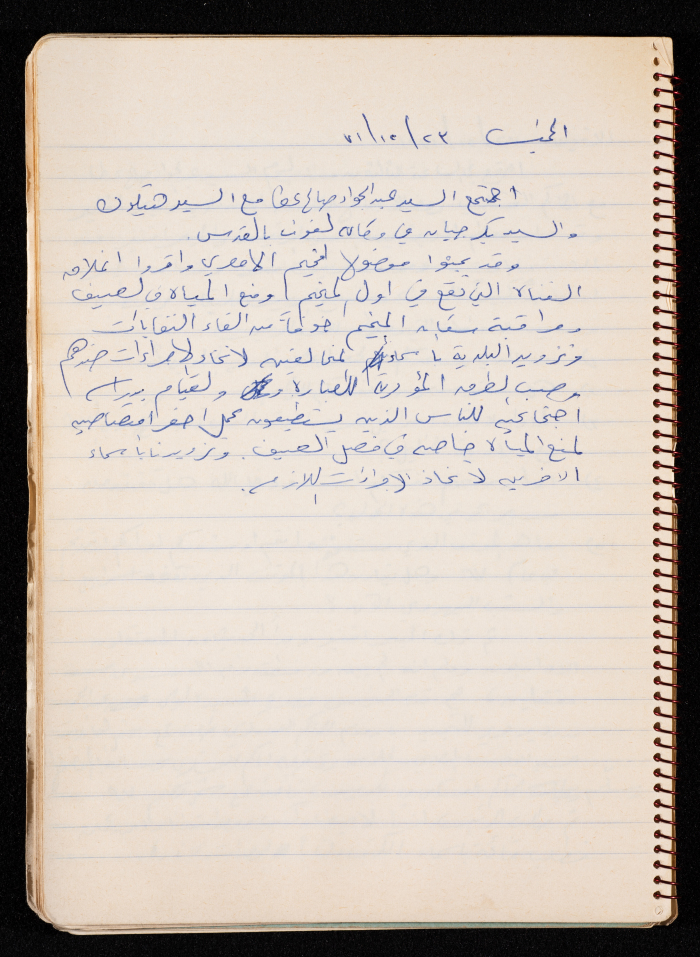 الخميس ٢٣/١٢/٧١
اجتمع السيد عبد الجواد صالح عطا مع السيد هتلون
والسيد بكرجيان في وكالة الغوث بالقدس.
وقد بحثوا موضوع مخيم الامعري واقروا اغلاق
القناة التي تقع في اول المخيم ومنع المياه في الصيف
ومراقبة سكان المخيم خوفاً من القاء النفايات
وتزويد البلدية باسماء المخالفين لاتخاذ الاجراءات ضدهم
وصب الطرق المؤدية للعبارة والقيام بدراسة
اجتماعية للناس الذين يستطيعون عمل احفر امتصاصية
لمنع المياه خاصة في فصل الصيف. وتزويدنا باسماء
الاخرين لاتخاذ الاجراءات اللازمة.